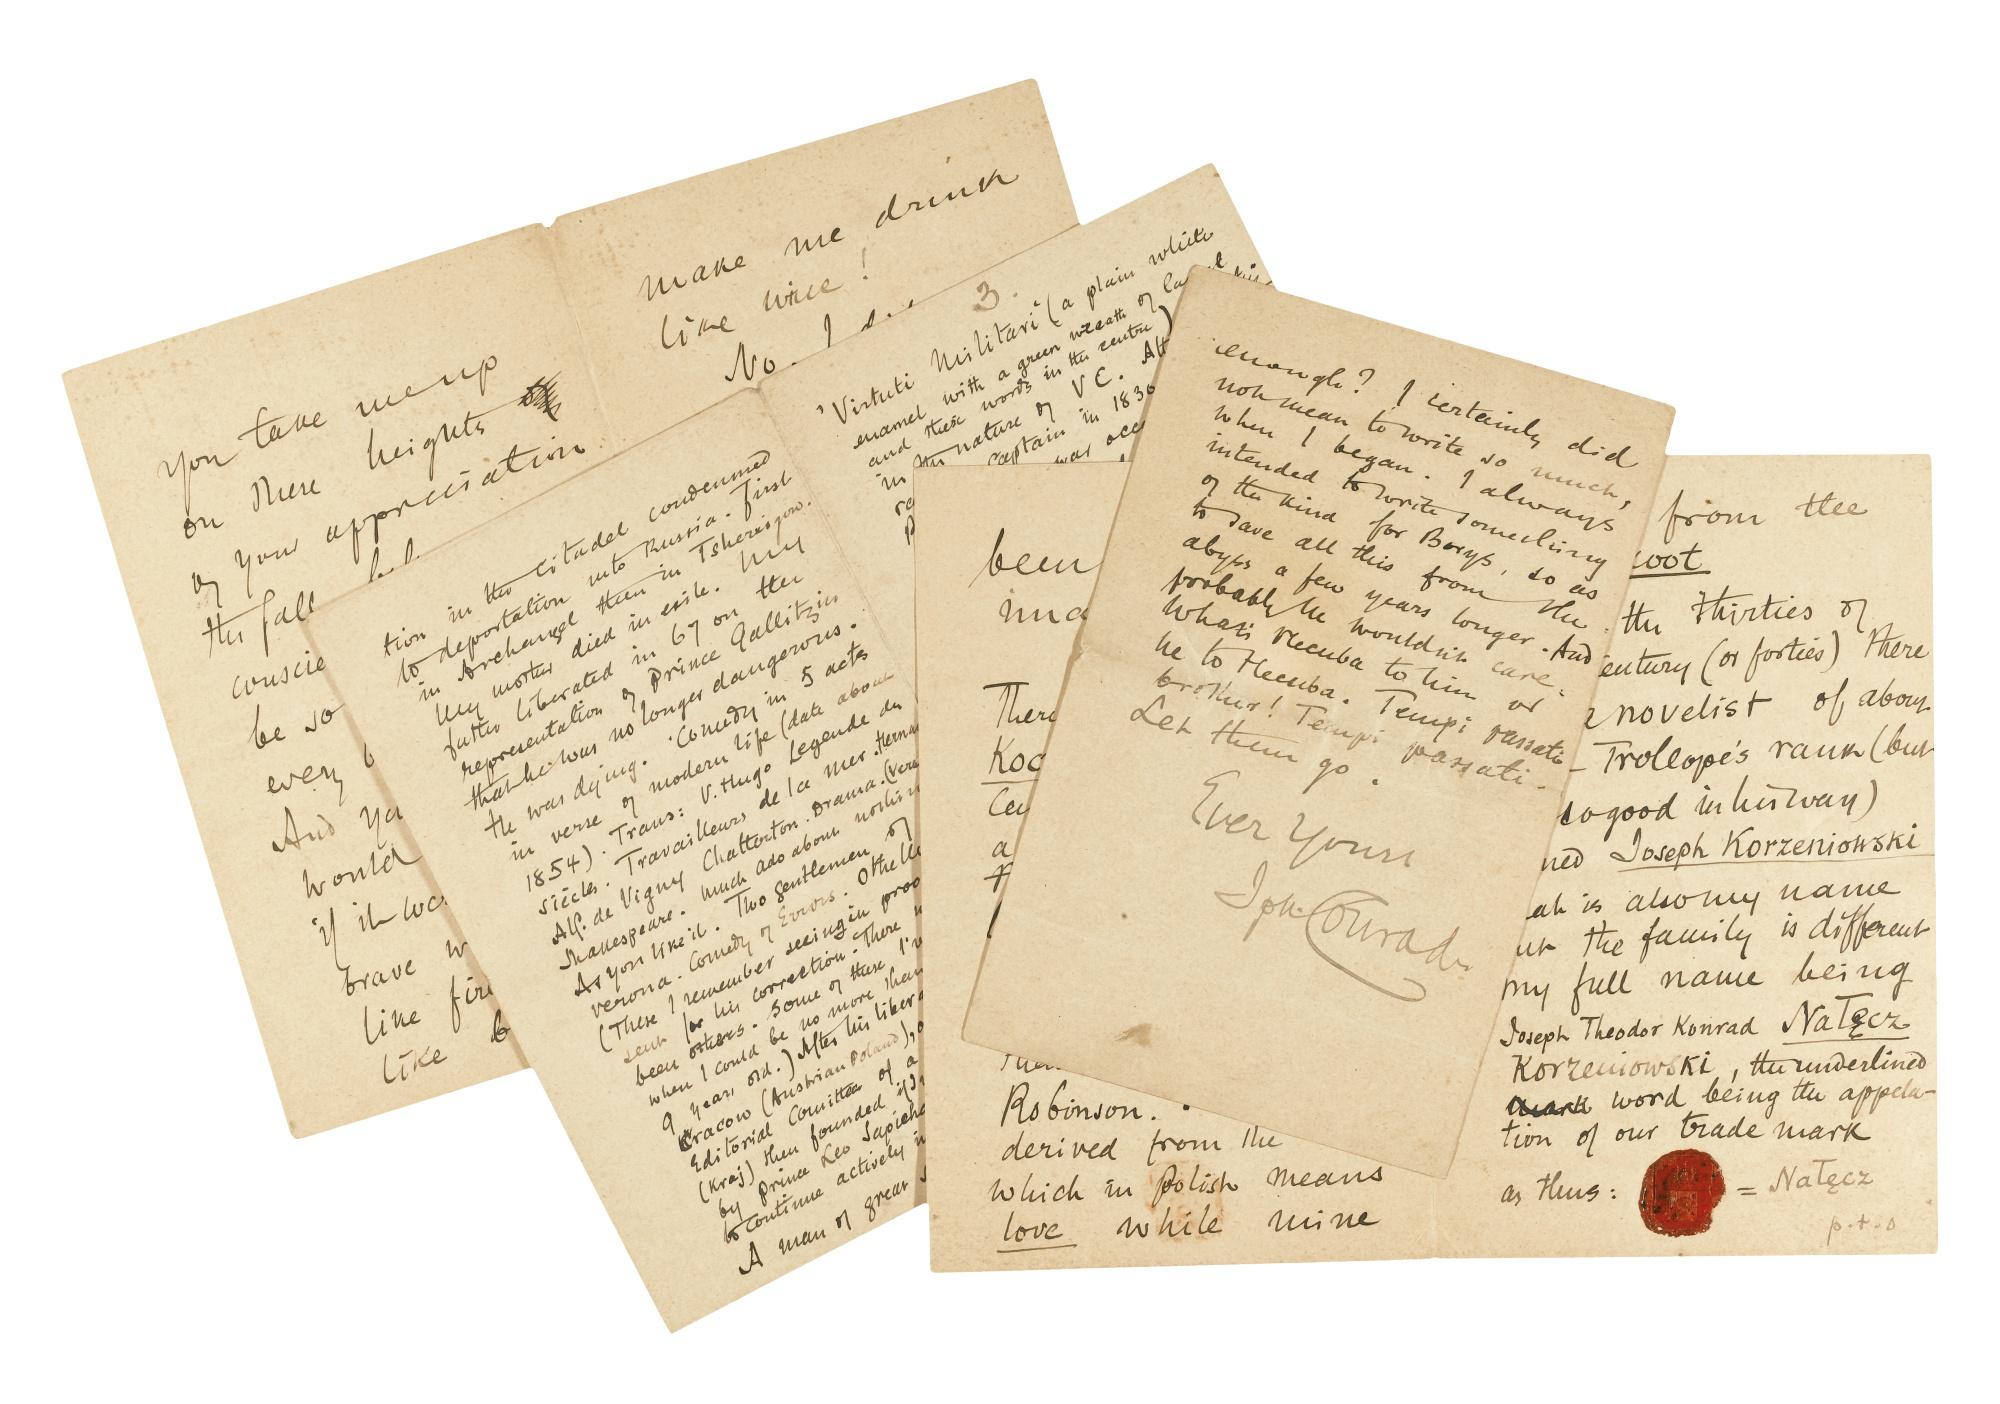 you take me up
on these heights
of your appreciation
the fall
conscie
be so
every
And ya
would
if it wc
brave w
like fire
like b
make me drink
like wine!
No. I
tion in the citadel condemned
to deportation into Russia. First
in Archangel then in Tshernigow.
My mother died in exile. My
father liberated in 67 on the
representation of Prince Gallitzin
that he was no longer dangerous.
He was dying. 'Comedy in 5 acts
in verse of modern life (date about
1854). Trans: V. Hugo Legende du
siècles. Travailleurs de la mer. Herna
Alf. de Vigny Chatterton. Drama. (Vers
Shakespeare. Much ado about nothin
As you like it. Two Gentlemen of
Verona. Comedy of Errors. Othello
(These I remember seeing in proo
sent for his correction. There
been others. Some of these I'v
when I could be no more than
9 years old.) After his libera
Cracow (Austrian Poland),
Editorial Comittee of a
(Kraj) then founded
by Prince Leo Sapieha
to continue actively in
A man of great
3.
'Virtuti Militari' (a plain white
enamel with a green wreath of
and these words in the centre)
in the nature of VC. Alt
Captain in 1830
was occ
been
ima
There
Koc
Ceu
a
Robinson.
derived from the
which in Polish means
love while mine
enough? I certainly did
not mean to write so much,
when I began. I always
intended to write something
of the kind for Borys, so as
to save all this from the
abyss a few years longer. And
probably he wouldn't care.
What's Hecuba to him or
he to Hecuba. Tempi passati
brother! Tempi passati.
Let them go.
Ever Yours
Jph. Conrad.
from the
root
the thirties of
entury (or forties) there
a novelist of about
Trollope's rank (but
so good in his way)
ned Joseph Korzeniowski
ah is also my name
ut the family is different
my full name being
Joseph Theodor Konrad Nałęcz
Korzeniowski, the underlined
mark word being the appela-
tion of our trade mark
as thus: = Nałęcz
p.t.o